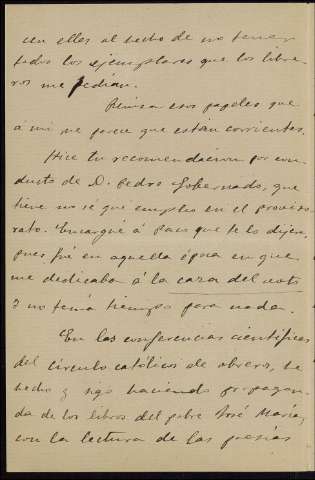 en elles al hecho de no tener
todos los ejemplares que los libre-
ros me pedian.
Revisa esos papeles que
á mi me parece que están corrientes.
Hice tu recomendacion por con-
ducto de D. Pedro Gobernado, que
tiene no sé qué empleo en el proviso-
rato. Encargué á Paco que te lo dijera,
pues fué en aquella época en que
me dedicaba á la caza del voto
y no tenía tiempo para nada.
En las conferencias científicas
del círculo católico de obreros, he
hecho y sigo haciendo propagan-
da de los libros del pobre José María,
con la lectura de las poesías